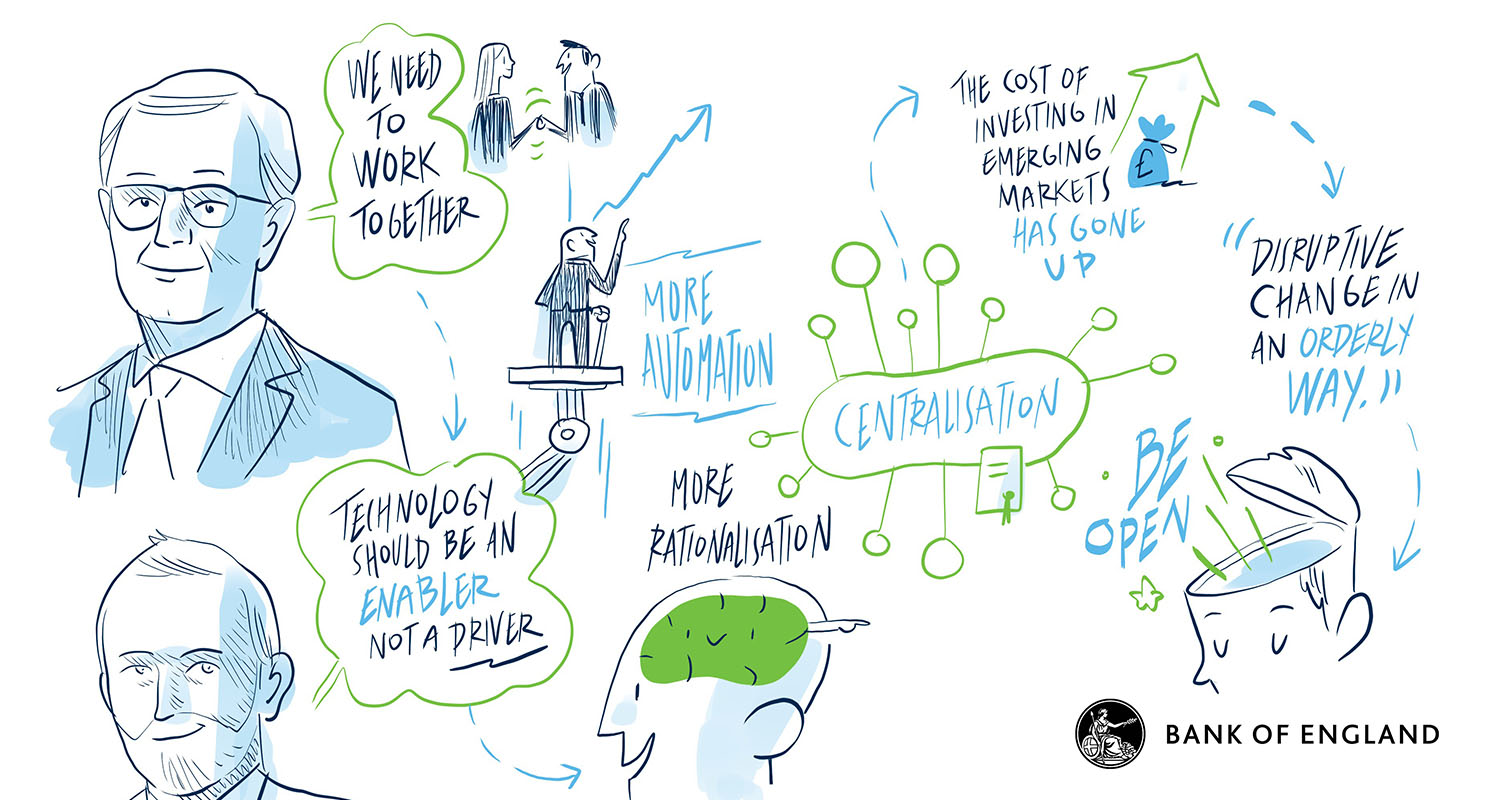 WE NEED
TO
WORK
TOGETHER
TECHNOLOGY
SHOULD BE AN
ENABLER
NOT A DRIVER
MORE
AUTOMATION
MORE
RATIONALISATION
CENTRALISATION
THE COST OF
INVESTING IN
EMERGING
MARKETS
HAS GONE
UP
£
“DISRUPTIVE
CHANGE IN
AN ORDERLY
WAY.”
BE
OPEN
BANK OF ENGLAND